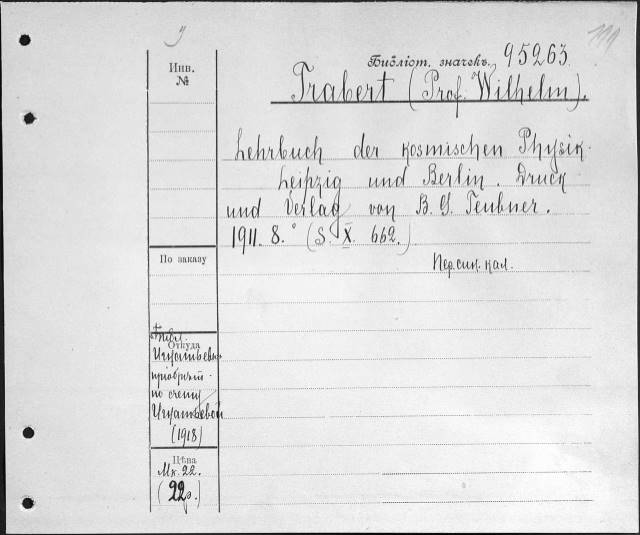 199
Библіот. значекъ. 95263.
Инв.
№
Trabert (Prof. Wilhelm).
Lehrbuch der kosmischen Physik.
Leipzig und Berlin. Druck
und Verlag von B. G. Teubner.
1911. 8.° (S. X. 662.)
Пер. син. кал.
По заказу
Откуда
по счету
(1918)
Цѣна
Мк. 22.
(22р.)